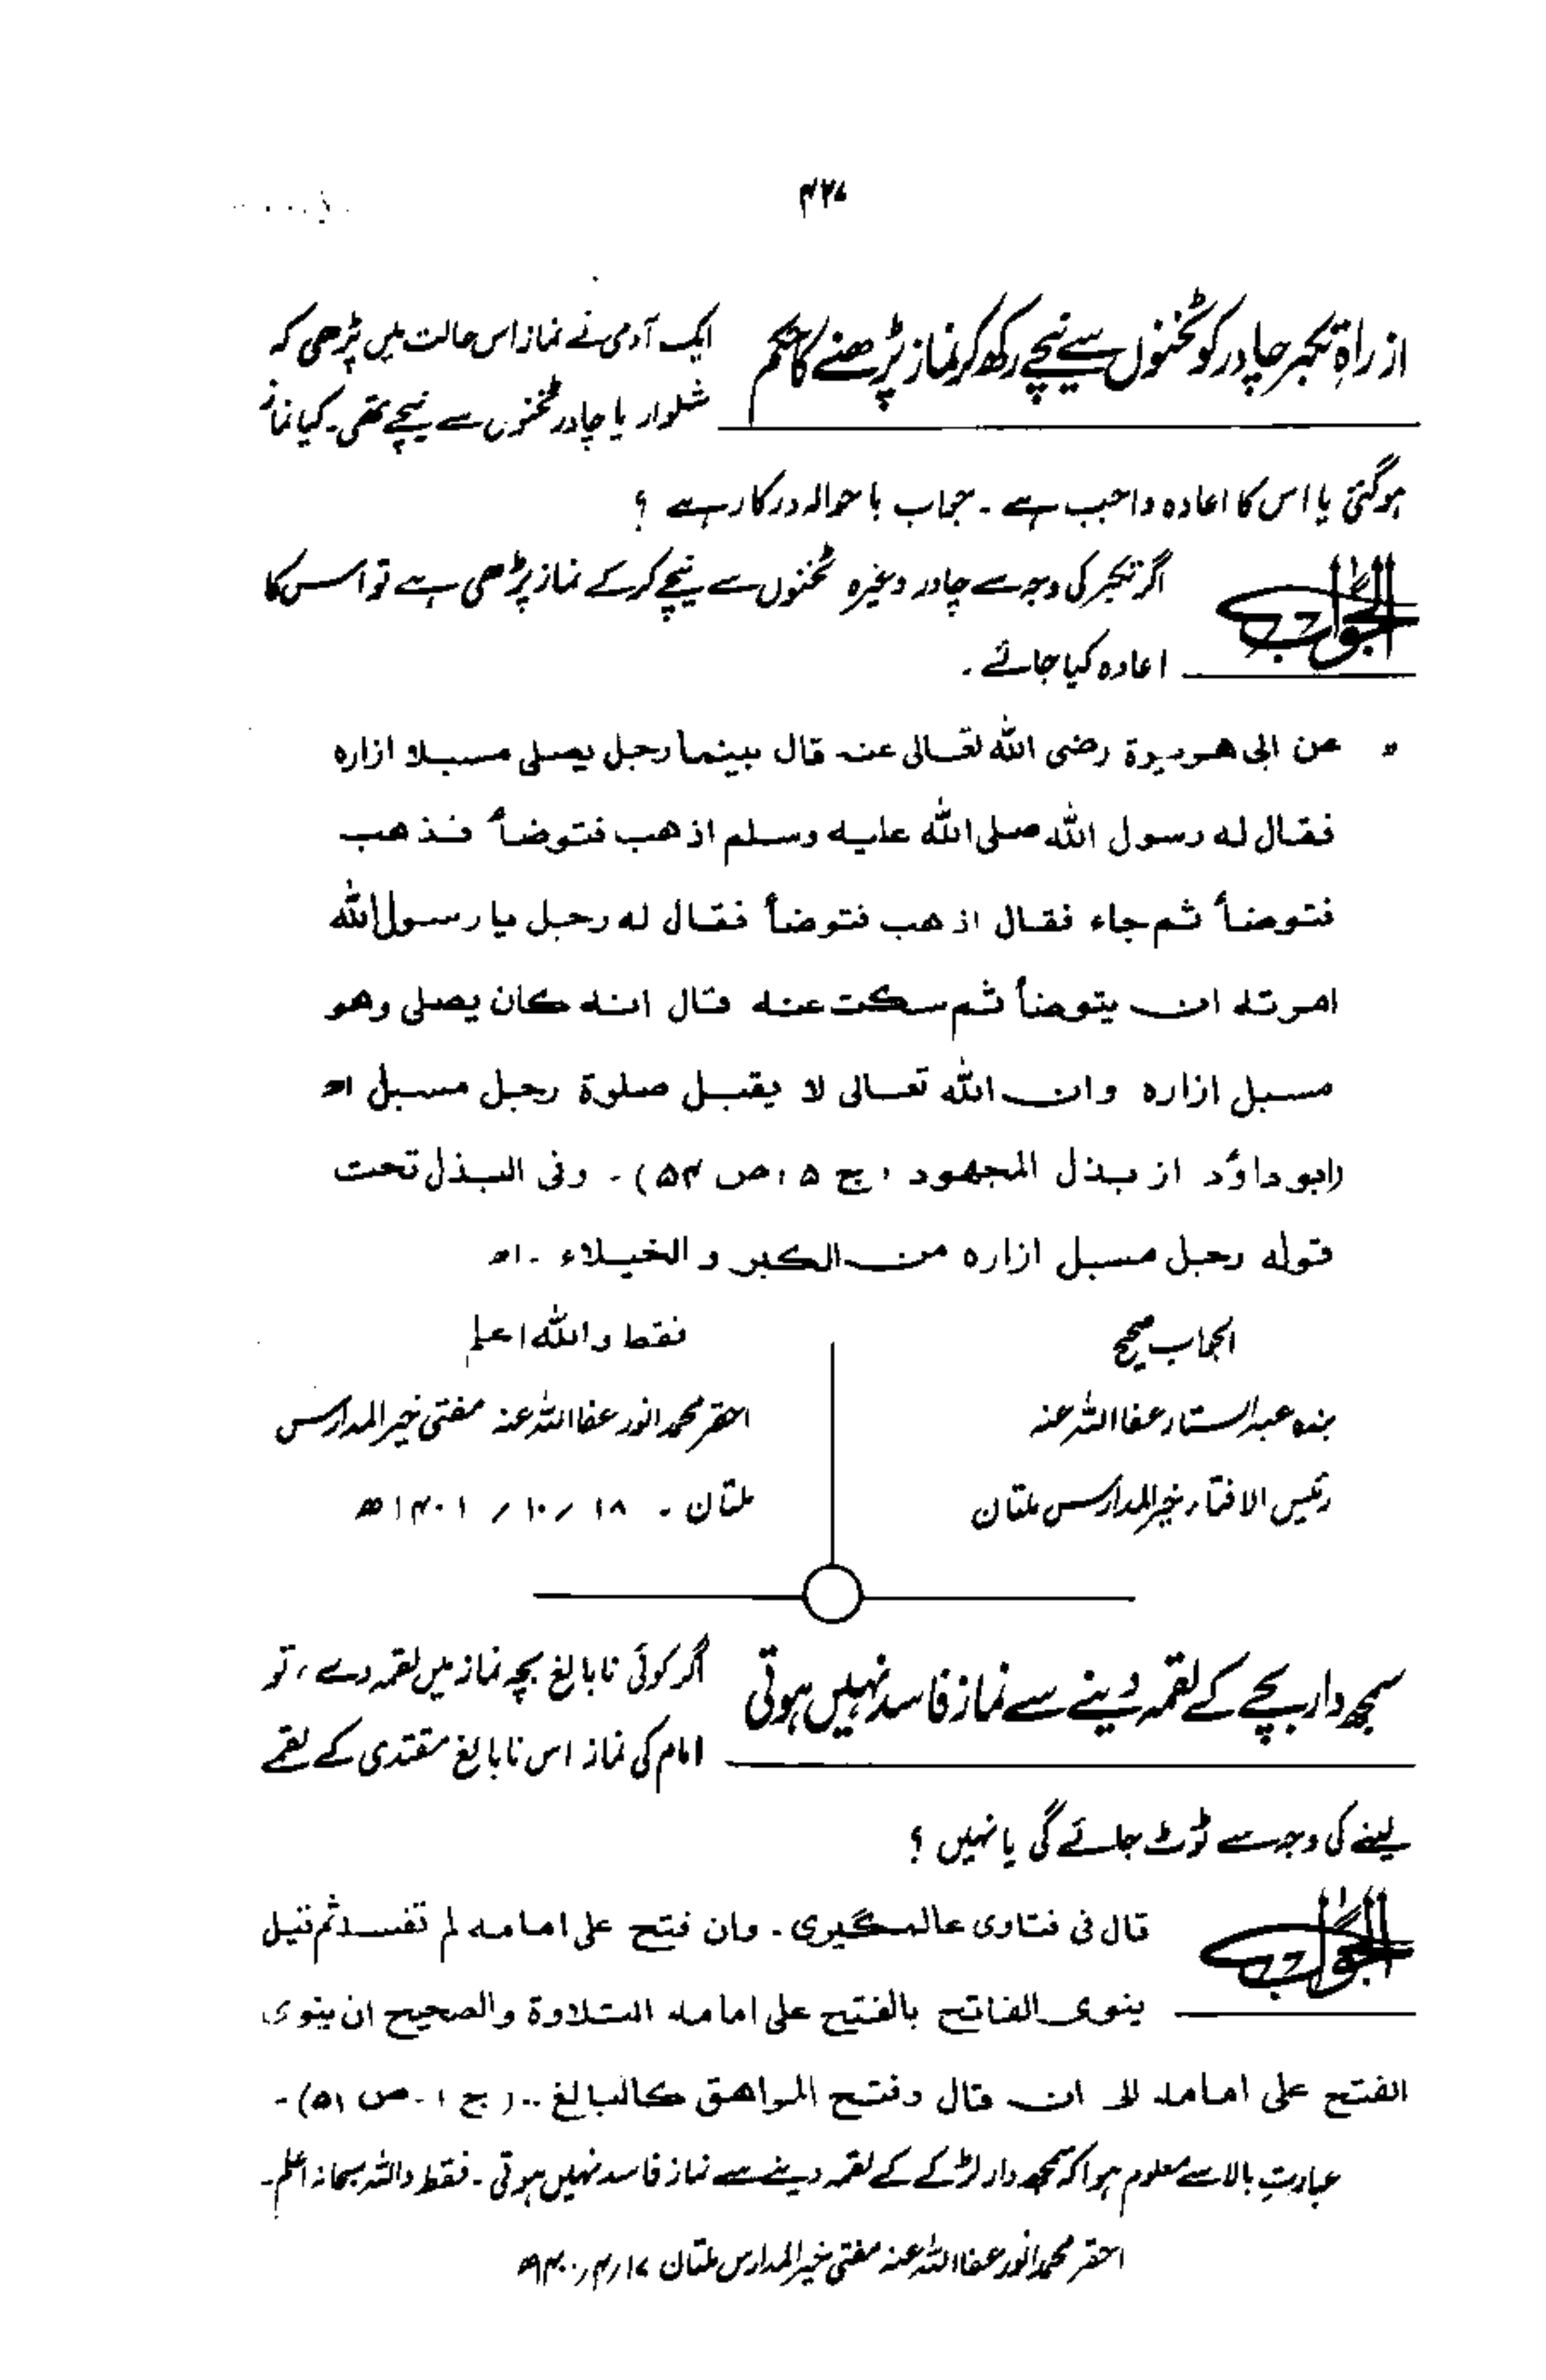 ۴۲۷
از راہِ تکبر چادر کو ٹخنوں سے نیچے رکھ کر نماز پڑھنے کا حکم
ایک آدمی نے نماز اس حالت میں پڑھی کہ
شلوار یا چادر ٹخنوں سے نیچے تھی۔ کیا نماز
ہوگئی یا اس کا اعادہ واجب ہے ۔ جواب باحوالہ درکار ہے ؟
الجواب
اگر تکبر کی وجہ سے چادر وغیرہ ٹخنوں سے نیچے کرکے نماز پڑھی ہے تو اس کا
اعادہ کیا جائے ۔
عن ابی هریرة رضی اللہ تعالی عنه قال بینما رجل یصلی مسبلا ازاره
فقال له رسول اللہ صلی اللہ علیه وسلم اذهب فتوضأ فذهب
فتوضأ ثم جاء فقال اذهب فتوضأ فقال له رجل یا رسول اللہ
امرته ان یتوضأ ثم سکت عنه قال انه کان یصلی وهو
مسبل ازاره وان اللہ تعالی لا یقبل صلوة رجل مسبل اھ
(ابو داؤد از بذل المجهود ، ج ۵ ، ص ۵۴) ۔ وفی البذل تحت
قوله رجل مسبل ازاره من الکبر و الخیلاء ۔ اھ
الجواب صحیح
بندہ عبدالستار عفا اللہ عنہ
رئیس الافتاء خیرالمدارس ملتان
فقط واللہ اعلم
احقر محمد انور عفا اللہ عنہ مفتی خیرالمدارس
ملتان ۔ ۱۸ / ۱۰ / ۱۴۰۱ھ
سمجھ دار بچے کے لقمہ دینے سے نماز فاسد نہیں ہوتی
اگر کوئی نابالغ بچہ نماز میں لقمہ دے ، تو
امام کی نماز اس نابالغ مقتدی کے لقمے
لینے کی وجہ سے ٹوٹ جائے گی یا نہیں ؟
الجواب
قال فی فتاوی عالمگیری ۔ وان فتح علی امامه لم تفسد ثم قیل
ینوی الفاتح بالفتح علی امامه التلاوة والصحیح ان ینوی
الفتح علی امامه الی ان قال وفتح المراهق کالبالغ .. (ج ۱ ۔ ص ۵۱) ۔
عبارتِ بالا سے معلوم ہوا کہ سمجھ دار لڑکے کے لقمہ دینے سے نماز فاسد نہیں ہوتی ۔ فقط واللہ سبحانہ اعلم ۔
احقر محمد انور عفا اللہ عنہ مفتی خیرالمدارس ملتان ۱۷/۴/